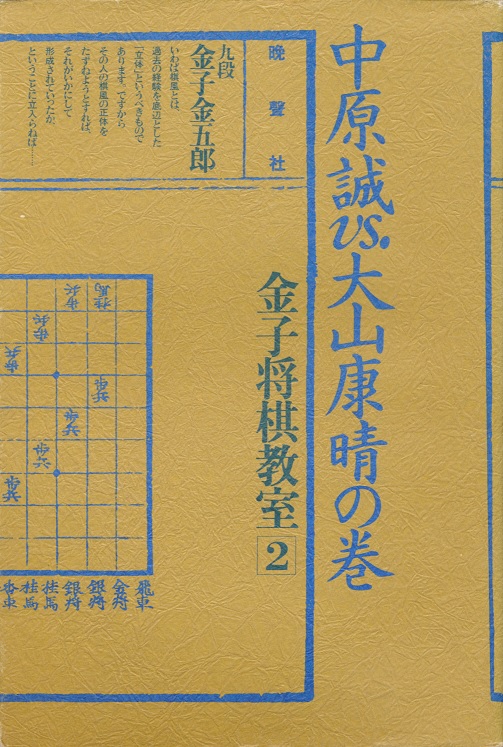 中原誠vs.大山康晴の巻
金子将棋教室2
晩聲社
九段
金子金五郎
いわば棋風とは、
過去の経験を底辺とした
「立体」というべきもので
あります。ですから
その人の棋風の正体を
たずねようとすれば、
それがいかにして
形成されていったか、
ということに立入らねば……
桂馬
歩兵
歩兵
歩兵
歩兵
歩兵
歩兵
飛車
金将
銀将
銀将
桂馬
桂馬
香車